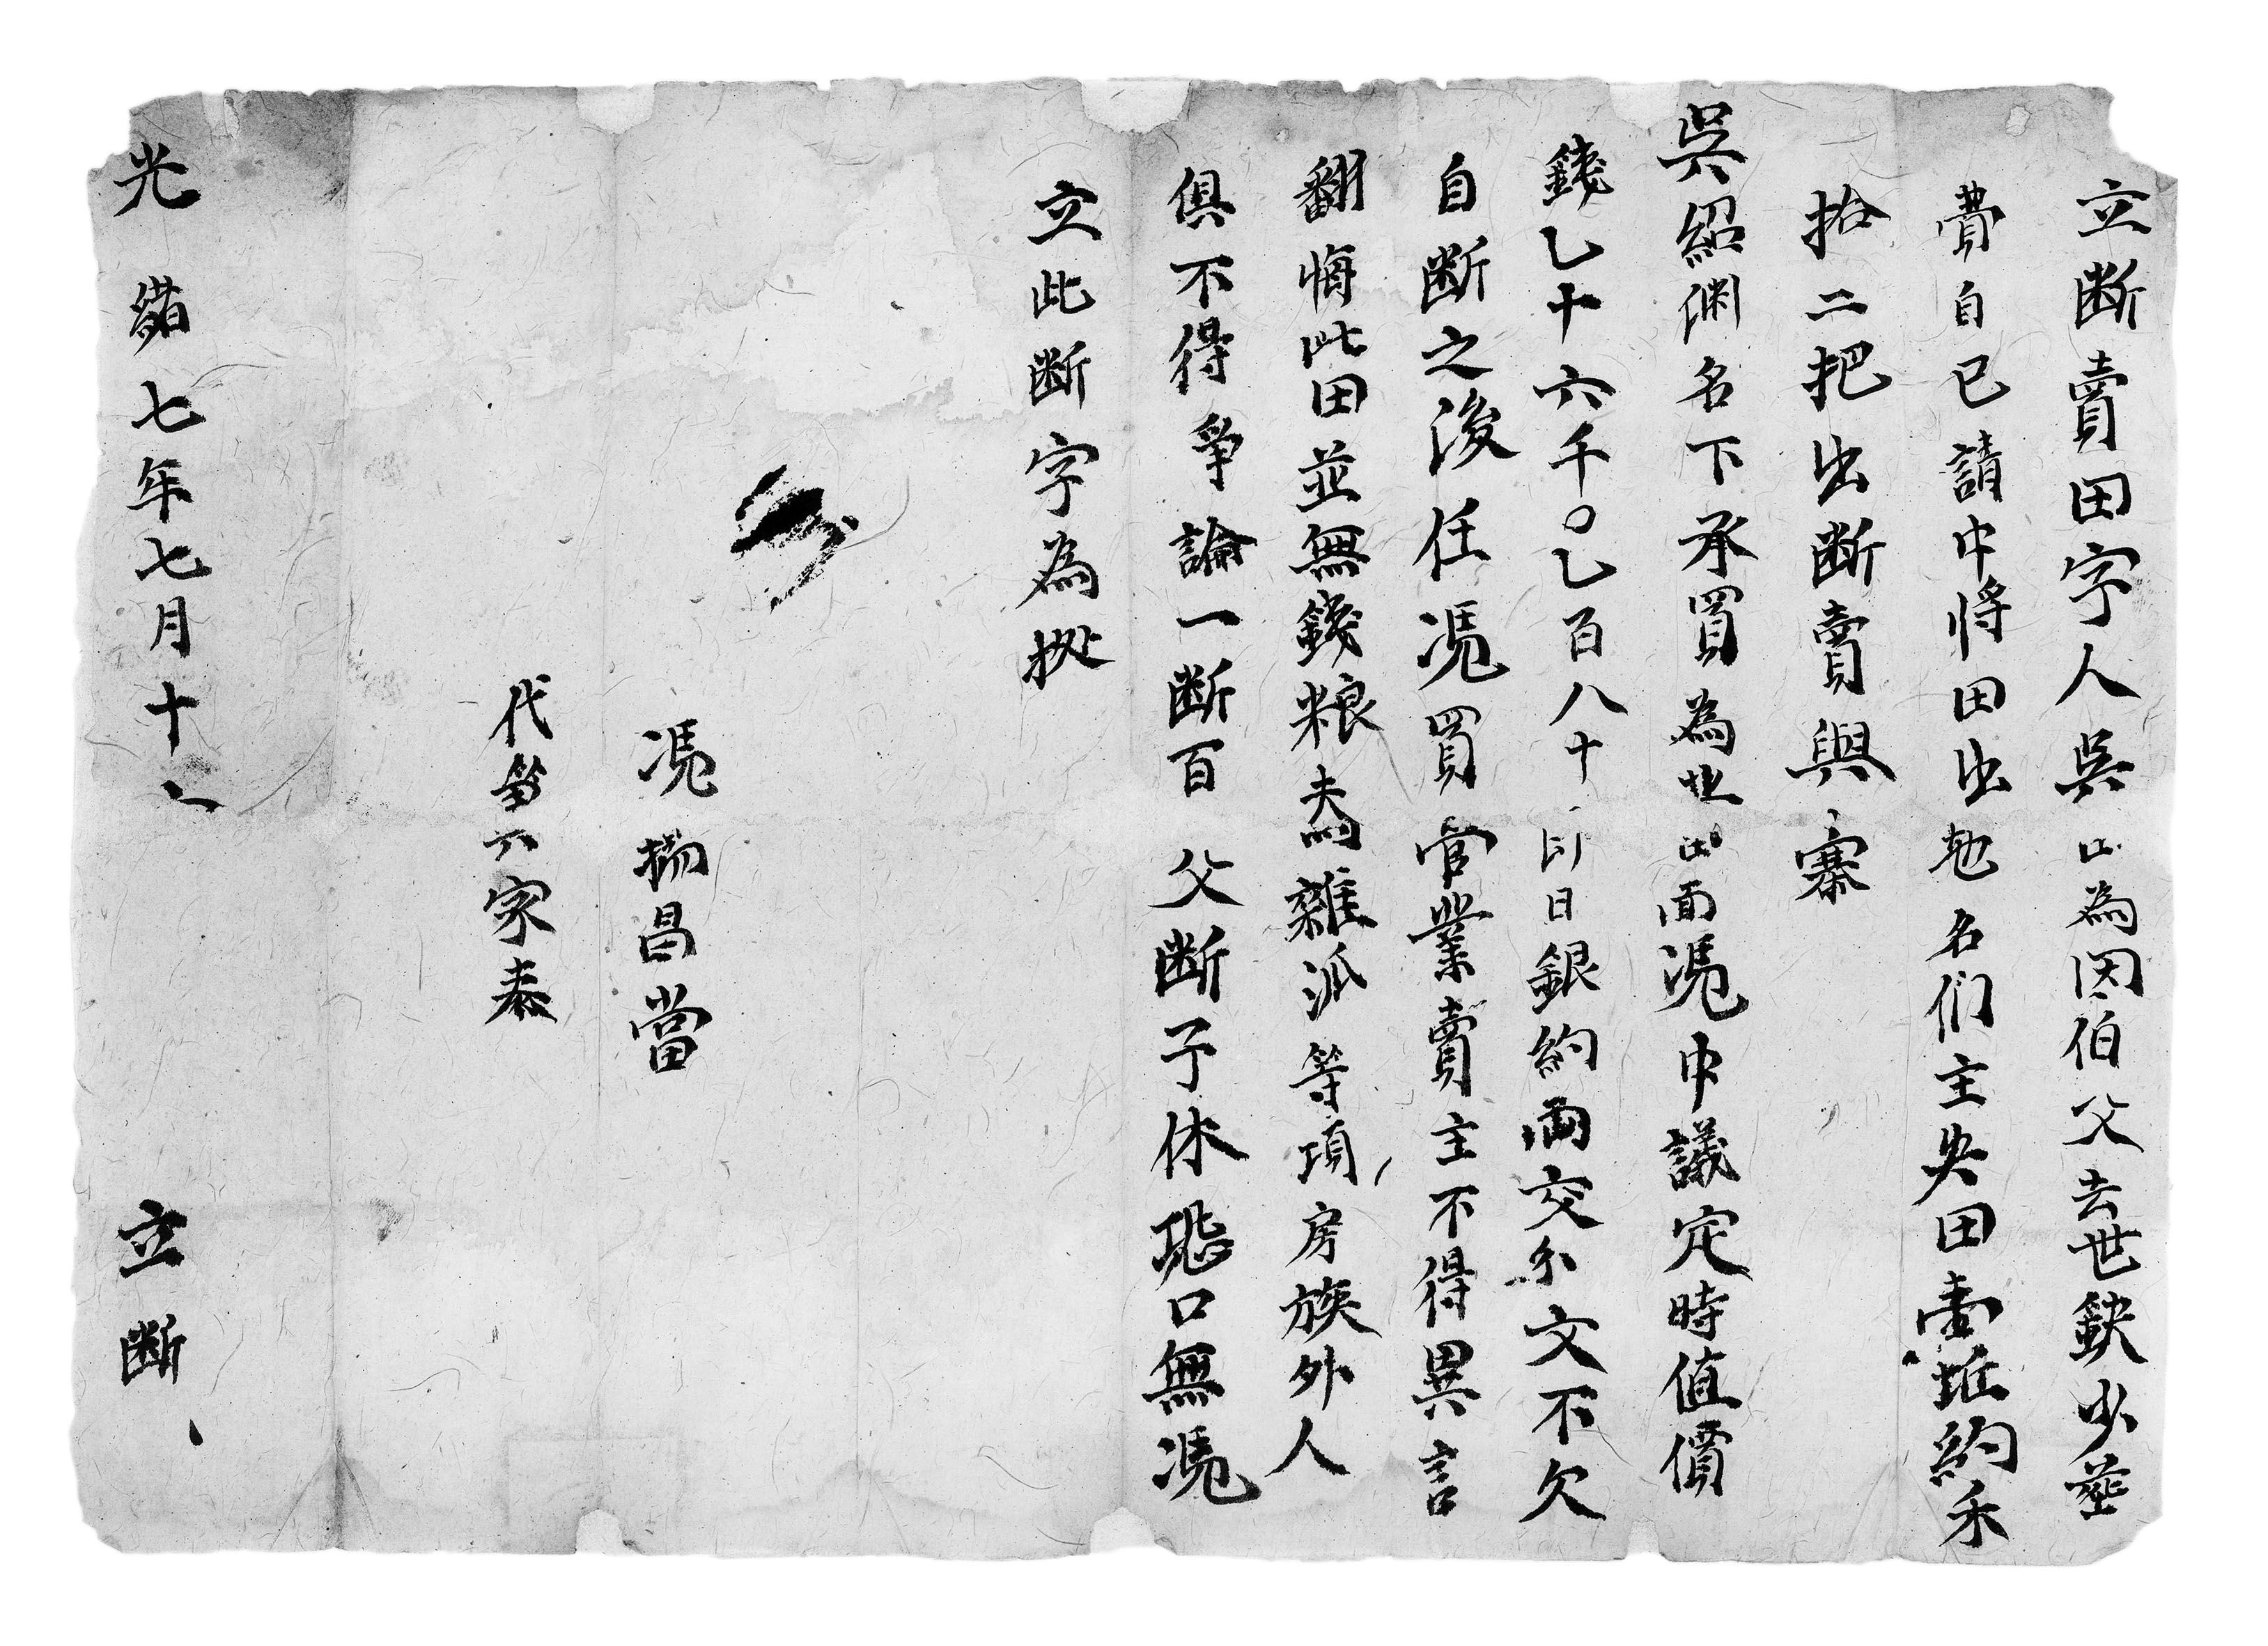 立断賣田字人吳山為因伯父去世缺少塟
費自已請中將田出地名们主央田壹坵約禾
拾二把出断賣與寨
吳紹渊名下承買為业出面凴中議定時值價
錢乚十六千〇乚百八十即日銀約兩交分文不欠
自断之後任凴買官業賣主不得異言
翻悔此田並無錢粮夫馬雜派等項房族外人
俱不得爭論一断百父断子休恐口無凴
立此断字為㨿
凴楊昌當
代筆家泰
光緒七年七月十八立断